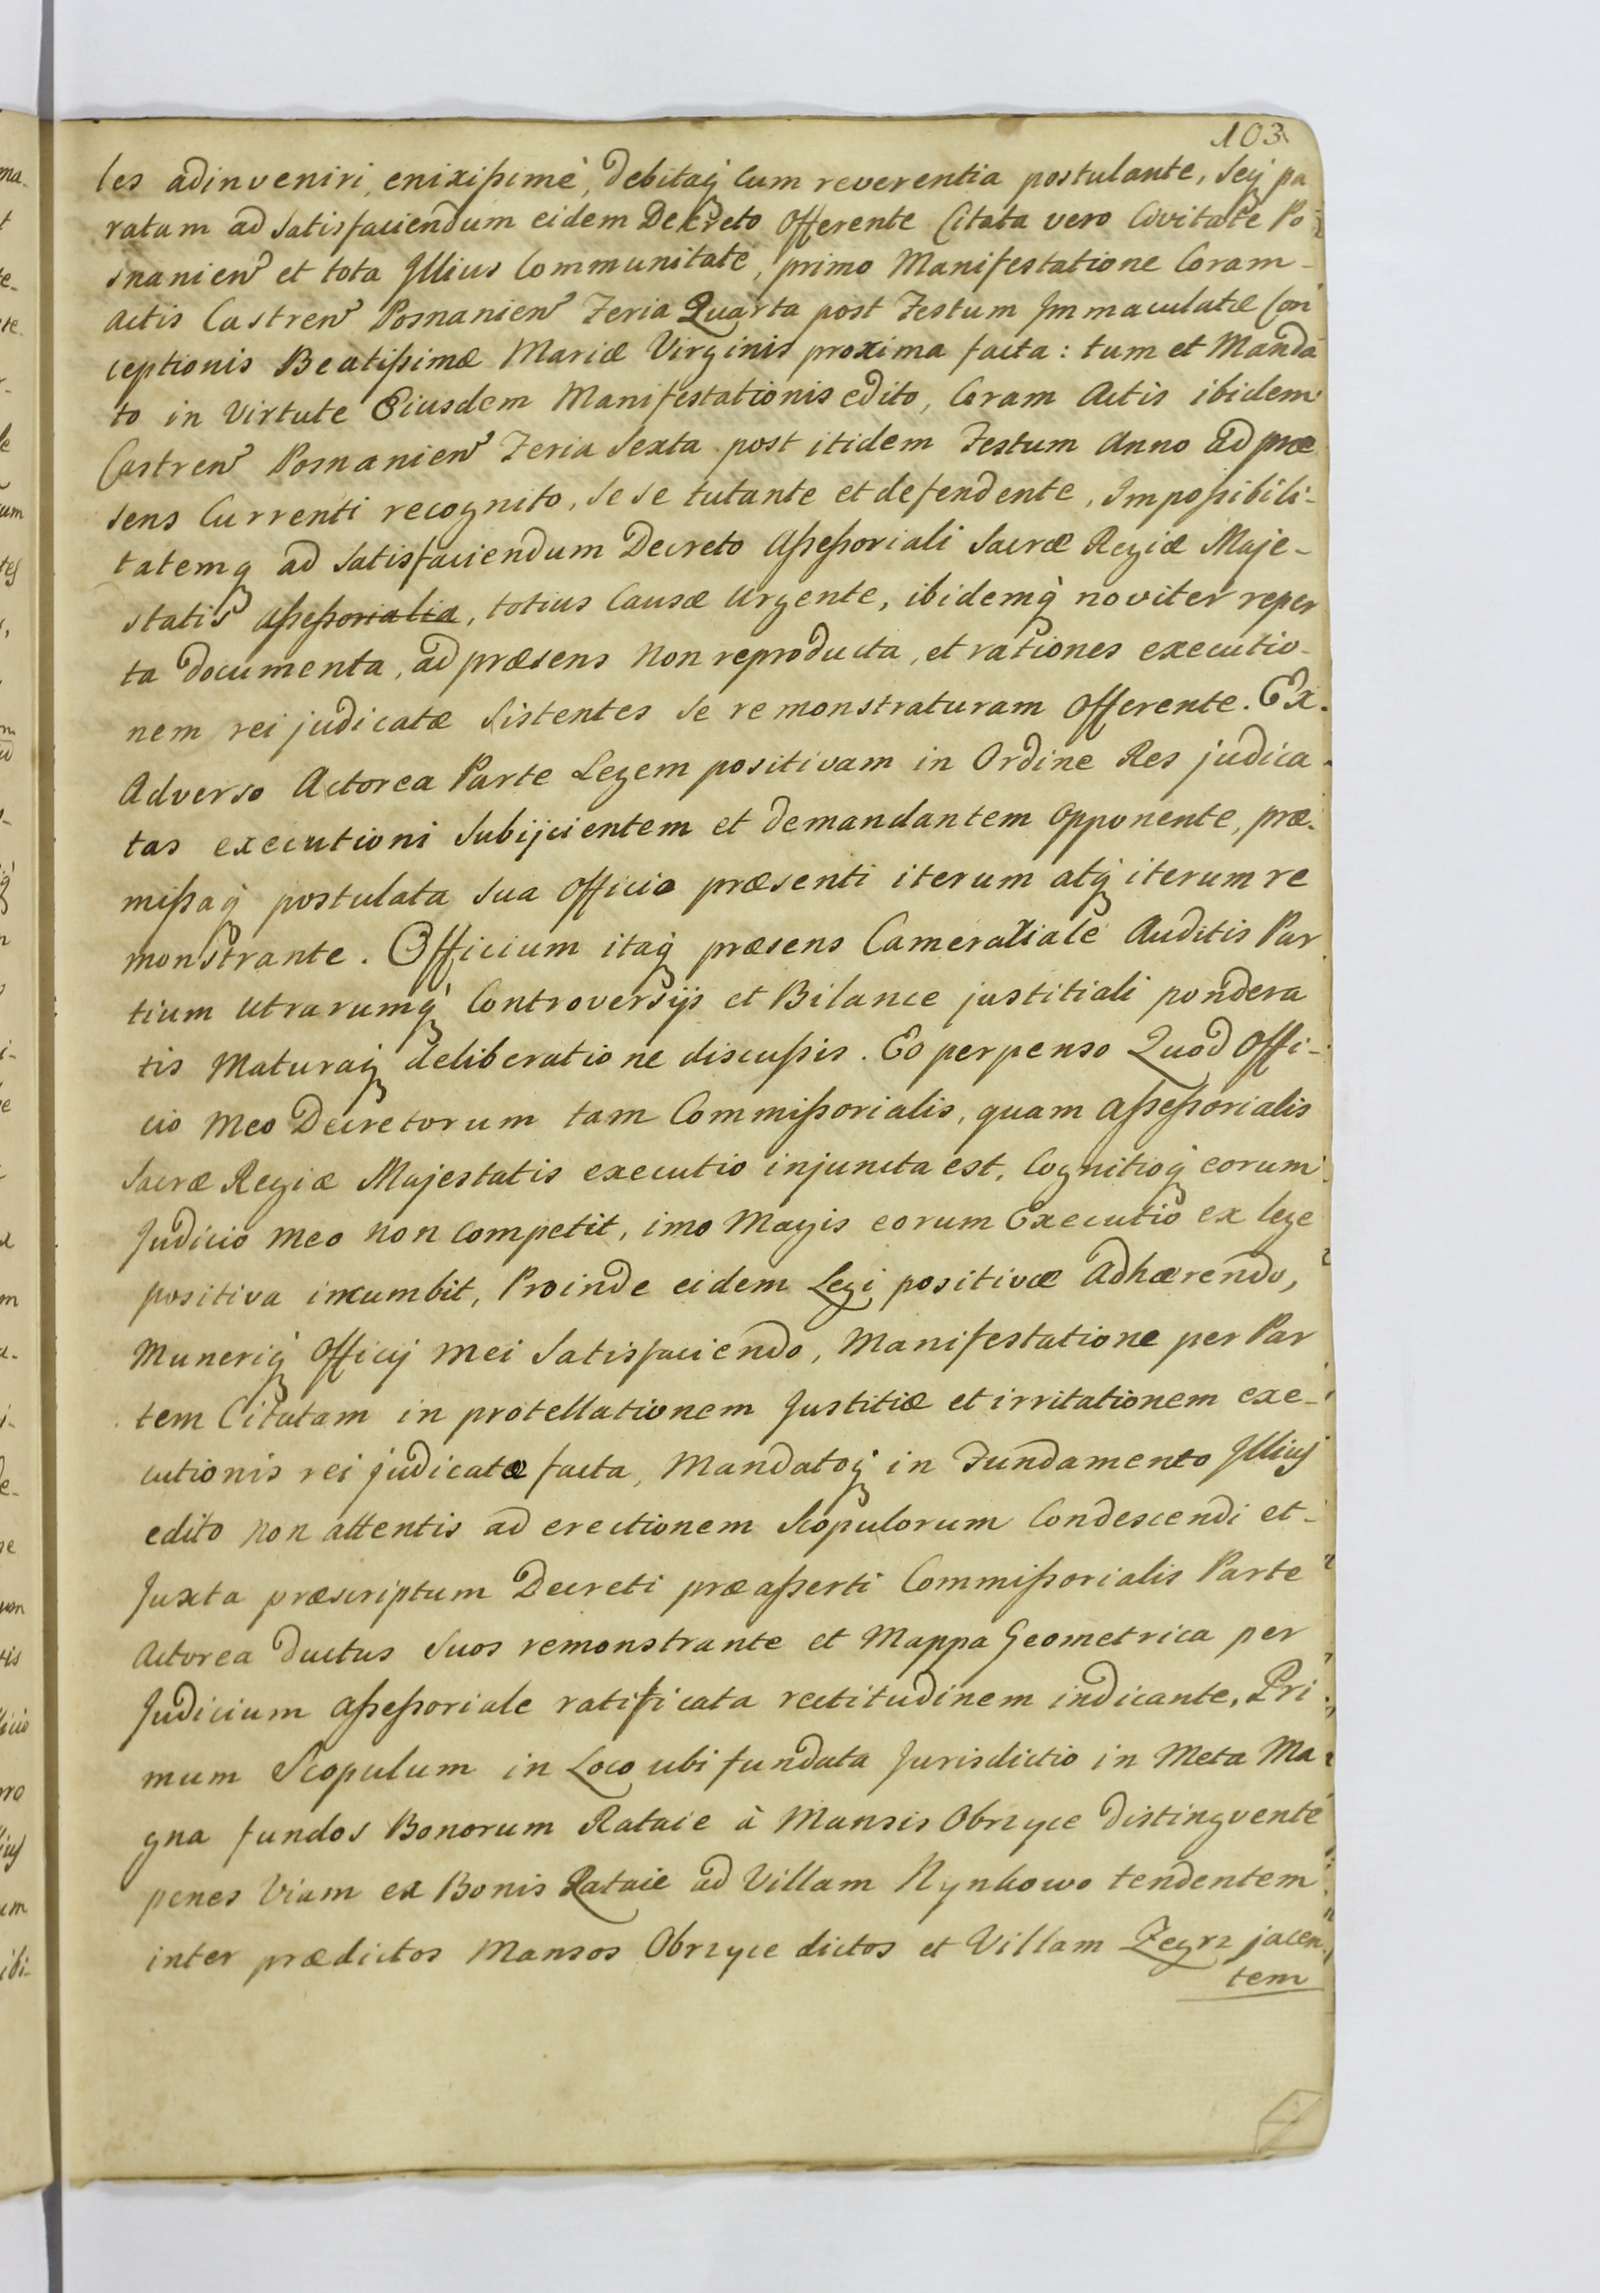 103
les adinveniri, enixißimè, debitaq́ Cum reverentia postulante, Seq́ pa
ratum ad Satisfaciendum eidem Decreto Offerente Citata vero Civitate Po
snanien et tota Illius Communitate, primo Manifestatione Coram-
Actis Castren Posnanien Feria Quarta post Festum Immaculatæ Con
ceptionis Beatißimæ Mariæ Virginis proxima facta: tum et Manda
to in Virtute Eiusdem Manifestationis edito, Coram Actis ibidem
Castren Posnanien Feria Sexta post itidem Festum Anno ad præ
sens Currenti recognito, se se tutante et defendente, Impoßibili-
tatemq́ ad Satisfaciendum Decreto Aßeßoriali Sacræ Regiæ Maje-
statis Aßeßorialia, totius Causæ Urgente, ibidemq́ noviter reper
ta documenta, ad præsens non reproducta, et rationes executio-
nem rei judicatæ Sistentes se remonstraturam Offerente. Ex.
Adverso Actorea Parte Legem positivam in Ordine Res judica-
tas executioni Subijcientem et demandantem opponente, præ-
mißaq́ postulata sua Officio præsenti iterum atq́ iterum re
monstrante. Officium itaq́ præsens Camerariale Auditis Par
tium Utrarumq́ Controversijs et Bilance justitiali pondera
tis Maturaq́ deliberatione discußis. Eo perpenso Quod Offi-
cio Meo Decretorum tam Commißorialis, quam Aßeßorialis
Sacræ Regiæ Majestatis executio injuncta est, Cognitioq́ eorum
Judicio meo non competit, imo Magis eorum Executio ex lege
positiva incumbit, Proinde eidem Legi positivæ Adhærendo,
Muneriq́ Officij mei Satisfaciendo, Manifestatione per Par
tem Citatam in protellationem Justitiæ et irritationem exe-
cutionis rei judicatæ facta, Mandatoq́ in Fundamento Illius
edito non attentis ad erectionem Scopulorum Condescendi et-
Juxta præscriptum Decreti præaßerti Commißorialis Parte
Actorea ductus Suos remonstrante et Mappa Geometrica per
Judicium Aßeßoriale ratificata rectitudinem indicante, Pri
mum Scopulum in Loco ubi fundata Jurisdictio in Meta Ma
gna fundos Bonorum Rataie à Mansis Obrzyce distingvente
penes Viam ex Bonis Rataie ad Villam Nynkowo tendentem
inter prædictos Mansos Obrzyce dictos et Villam Zegrz jacen
tem